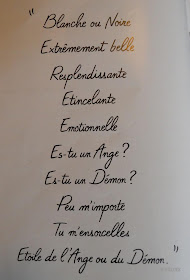 "
Blanche ou Noire
Extrêmement belle
Resplendissante
Etincelante
Emotionnelle
Es-tu un Ange ?
Es-tu un Démon ?
Peu m'importe
Tu m'ensorcelles
Etoile de l'Ange ou du Démon. "